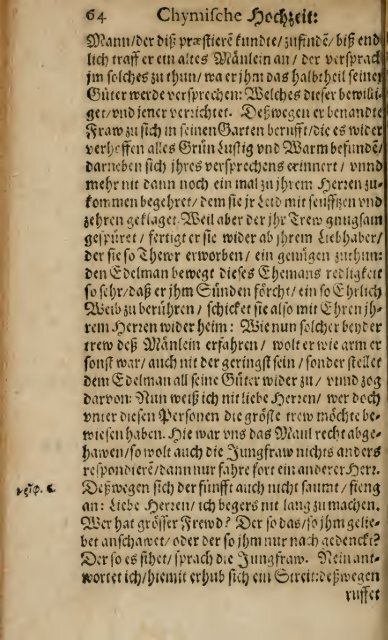 64 Chymische Hochzeit:
Mann/der diß præstierẽ kundte/zufindẽ/biß end
lich traff er ein altes Mänlein an/ der versprach
jm solches zu thun/wa er jhm das halbtheil seiner
Güter werde versprechen: Welches dieser bewilli-
get/vnd jener verzichtet. Deßwegen er benandte
Fraw zu sich in seinen Garten berufft/die es wider
verhoffen alles Grün Lustig vnd Warm befunden/
darneben sich jhres versprechens erinnert/ vnnd
mehr nit dann noch ein mal zu jhrem Herzen zu-
kommen begehret/dem sie jr Leid mit seufftzen vnd
zehren geklaget. Weil aber der jhr Trew gnugsam
gespüret/ fertigt er sie wider ab jhrem Liebhaber/
der sie so Thewr erworben/ ein genügen zuthun:
den Edelman bewegt dieses Ehemans redligkeit
so sehr/daß er jhm Sünden förcht/ein so Ehrlich
Weib zu berühren/ schicket sie also mit Ehren jh-
rem Herzen wider heim: Wie nun solcher beyder
trew deß Mänlein erfahren/ wolt er wie arm er
sonst war/auch nit der geringst sein/sonder stellet
dem Edelman all seine Güter wider zu/ vnnd zog
darvon: Nun weiß ich nit liebe Herzen/ wer doch
vnter diesen Personen die gröste trew möchte be-
wiesen haben. Hie war vns das Maul recht abge-
hawen/so wolt auch die Jungfraw nichts anders
respondierẽ/dann nur fahre fort ein anderer Herz.
Deßwegen sich der fünfft auch nicht saumt/ fieng
an: Liebe Herzen/ ich begers nit lang zu machen.
Wer hat grösser Frewd? Der so das/so jhm gelie-
bet anschawet/oder der so jhm nur nach gedenckt?
Der so es sihet/sprach die Jungfraw. Nein ant-
wortet ich/hiemit erhub sich ein Streit: deßwegen
ruffet